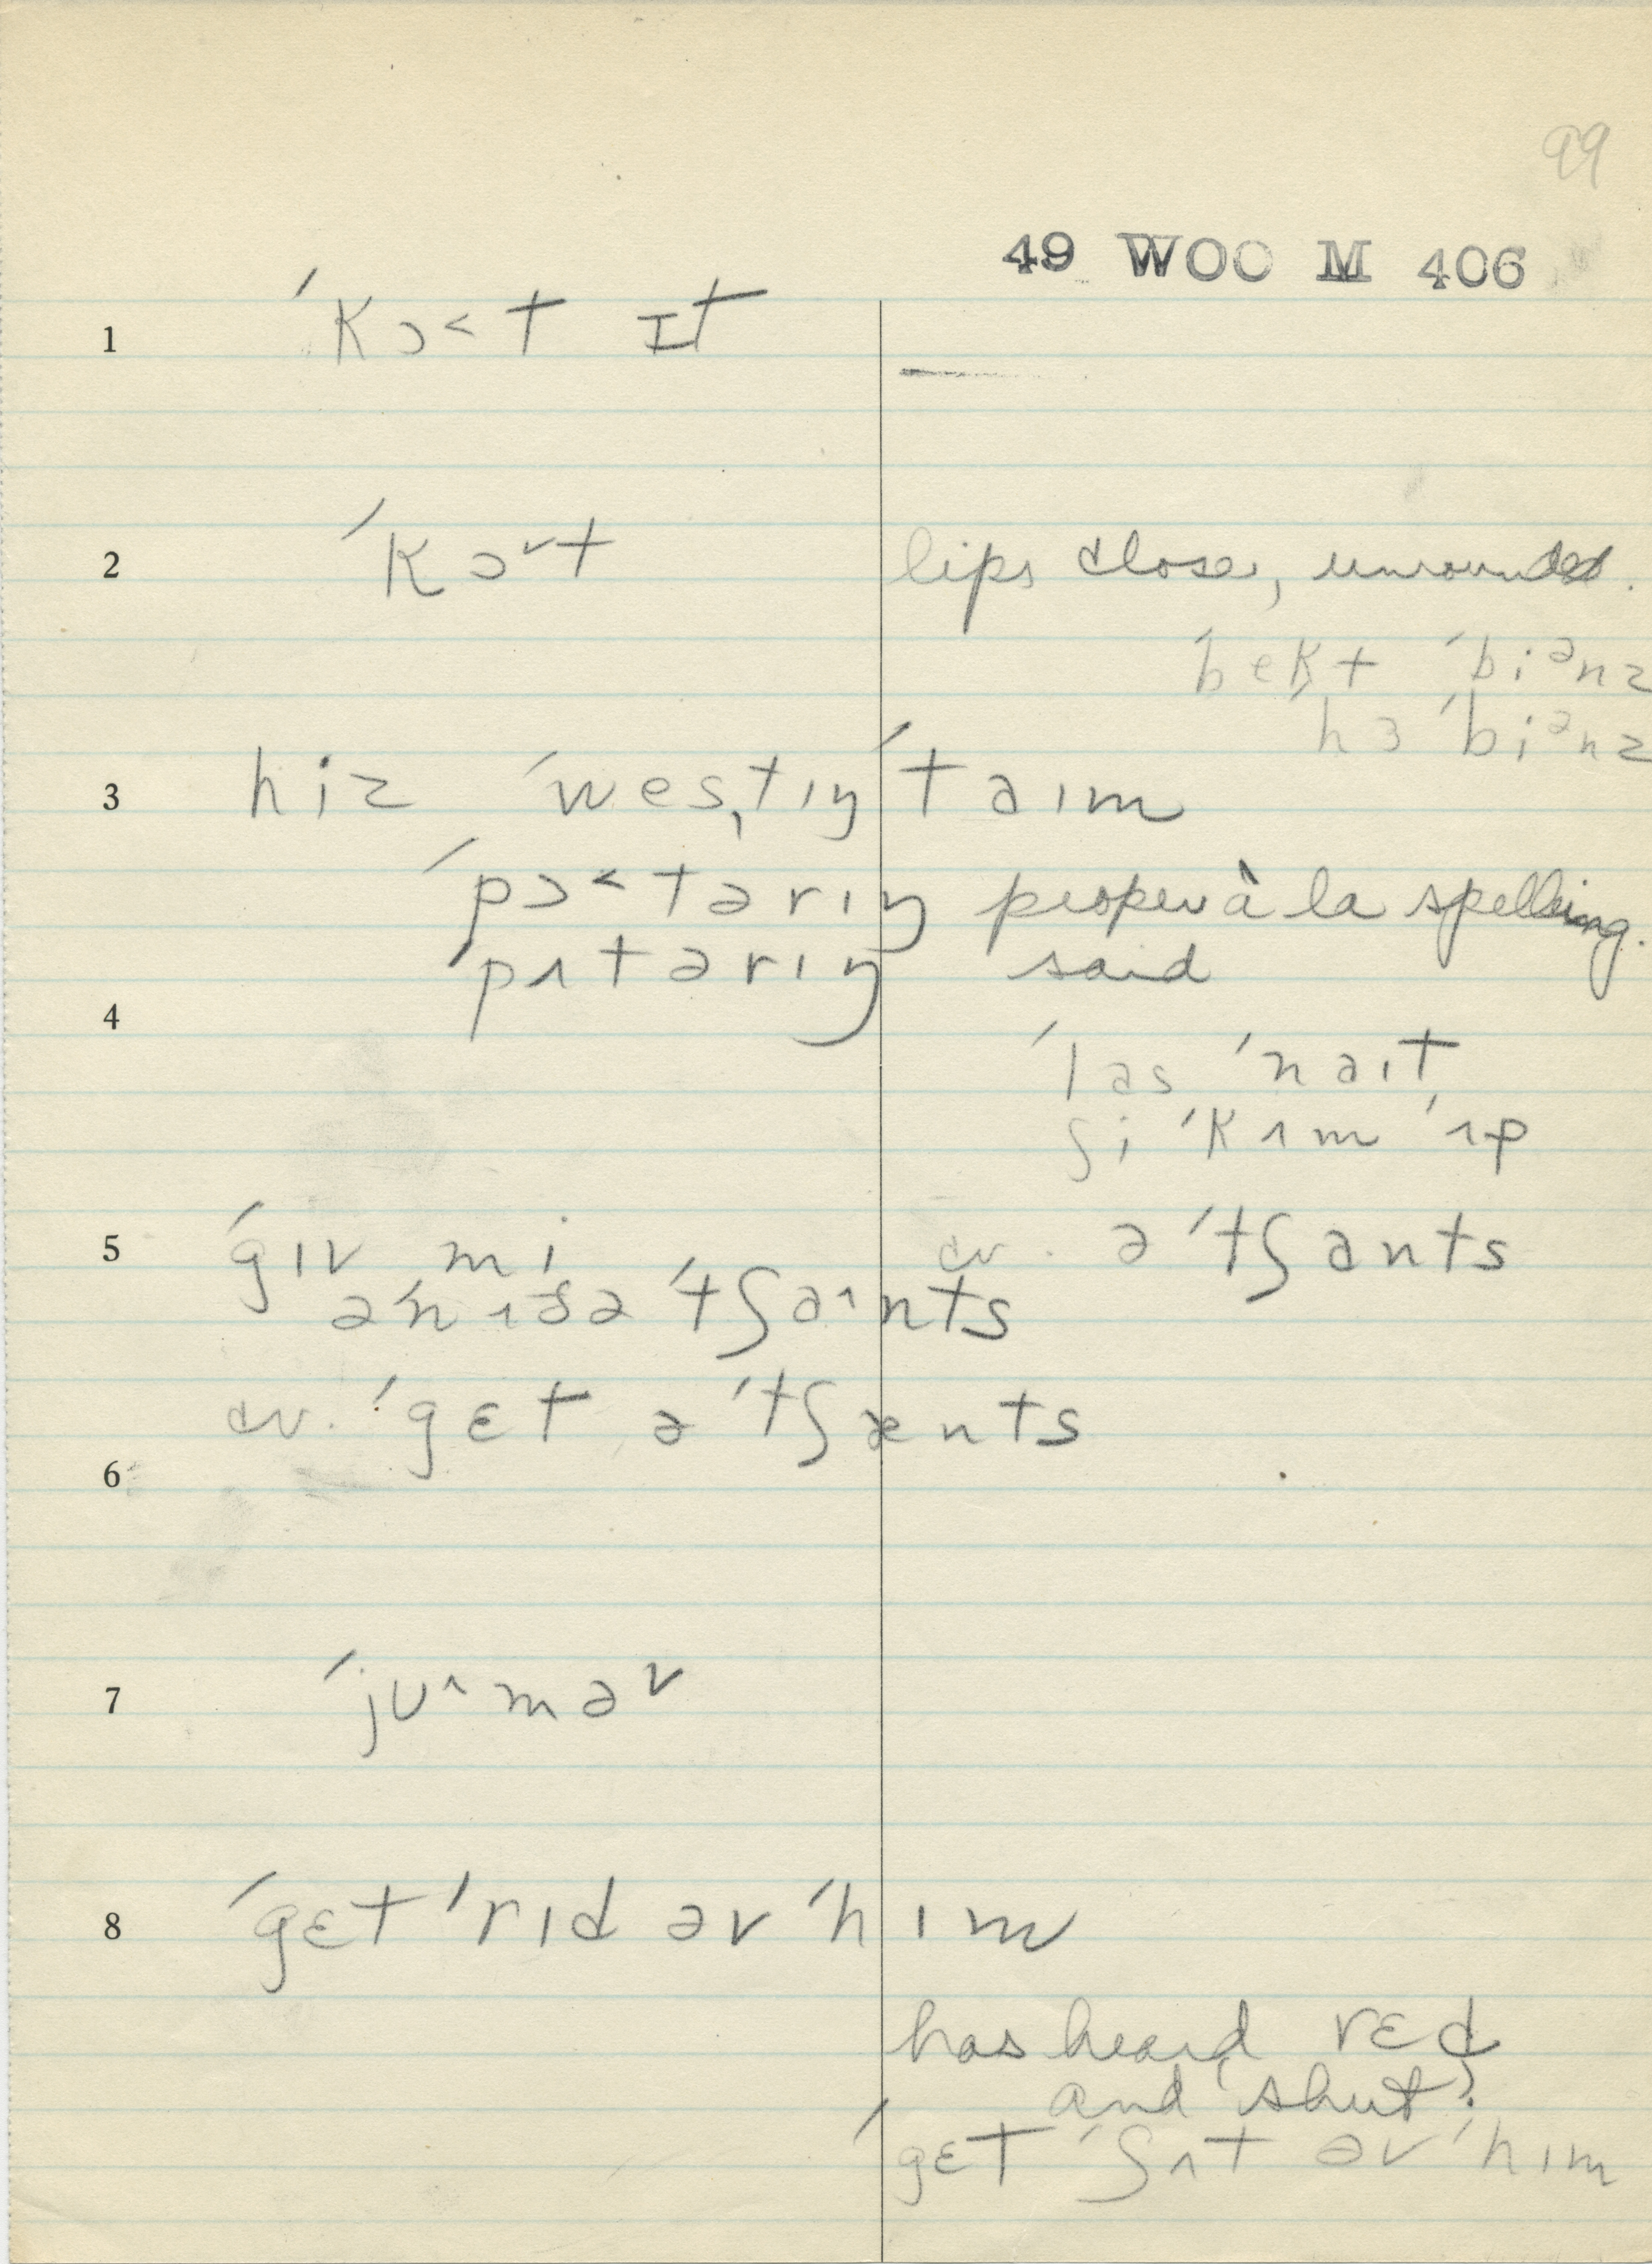 99
49 WOO M 406
1 ˈkɔ˂t ɪt
2 ˈkɔ˅t lips close, unrounded.
ˈbekt ˈbiᵊnz
ˈhɜ ˈbiᵊnz
3 hiz ˈwesˌtɪŋ ˈtaɪm
ˈpɔ˂tərɪŋ proper à la spelling.
ˈpʌtərɪŋ said
4
ˈlas ˈnaɪt
ʃi ˈkʌm ˈʌp
5 ˈgɪv mi cv. ə ˈtʃants
əˈnʌðə ˈtʃa˄nts
cv. ˈgɛt ə ˈtʃænts
6
7 ˈjʊ˄mə˅
8 ˈgɛt ˈrɪd əv ˈhɪm
has heard rɛd
and shut:
ˈgɛt ˈʃʌt əv ˈhɪm